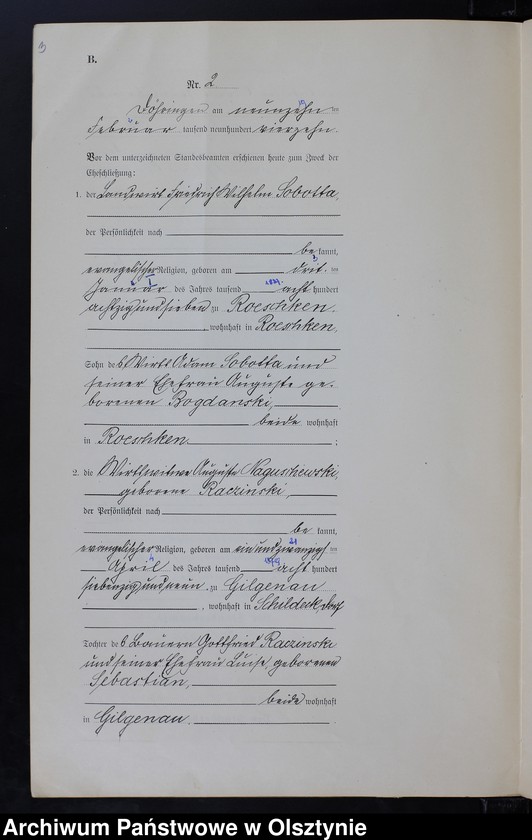 3
B.
Nr. 2
Döhringen am neunzehn ten
19
Februar tausend neunhundert vierzehn.
Vor dem unterzeichneten Standesbeamten erschienen heute zum Zweck der
Eheschließung:
1. der Landwirt Friedrich Wilhelm Sobotta,
der Persönlichkeit nach
be kannt,
evangelischer Religion, geboren am drit- ten
3
Januar des Jahres tausend acht hundert
1
achtzig und sieben zu Roeschken
, wohnhaft in Roeschken,
Sohn des Wirts Adam Sobotta und
seiner Ehefrau Auguste ge-
borenen Bogdanski,
beide wohnhaft
in Roeschken ;
2. die Wirtswitwe Auguste Naguschewski,
geborene Raczinski,
der Persönlichkeit nach
be kannt,
evangelischer Religion, geboren am ein und zwanzigs ten
21
April des Jahres tausend acht hundert
4
siebenzig und neun zu Gilgenau
, wohnhaft in Schildeck, Dorf
Tochter des Bauern Gottfried Raczinski
und seiner Ehefrau Luise, geborenen
Sebastian,
beide wohnhaft
in Gilgenau.
Archiwum Państwowe w Olsztynie